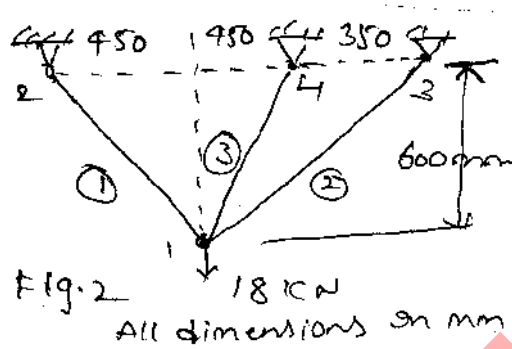 450 450 350
2 4 3
① ③ ② 600mm
1
Fig.2 18 KN
All dimensions in mm